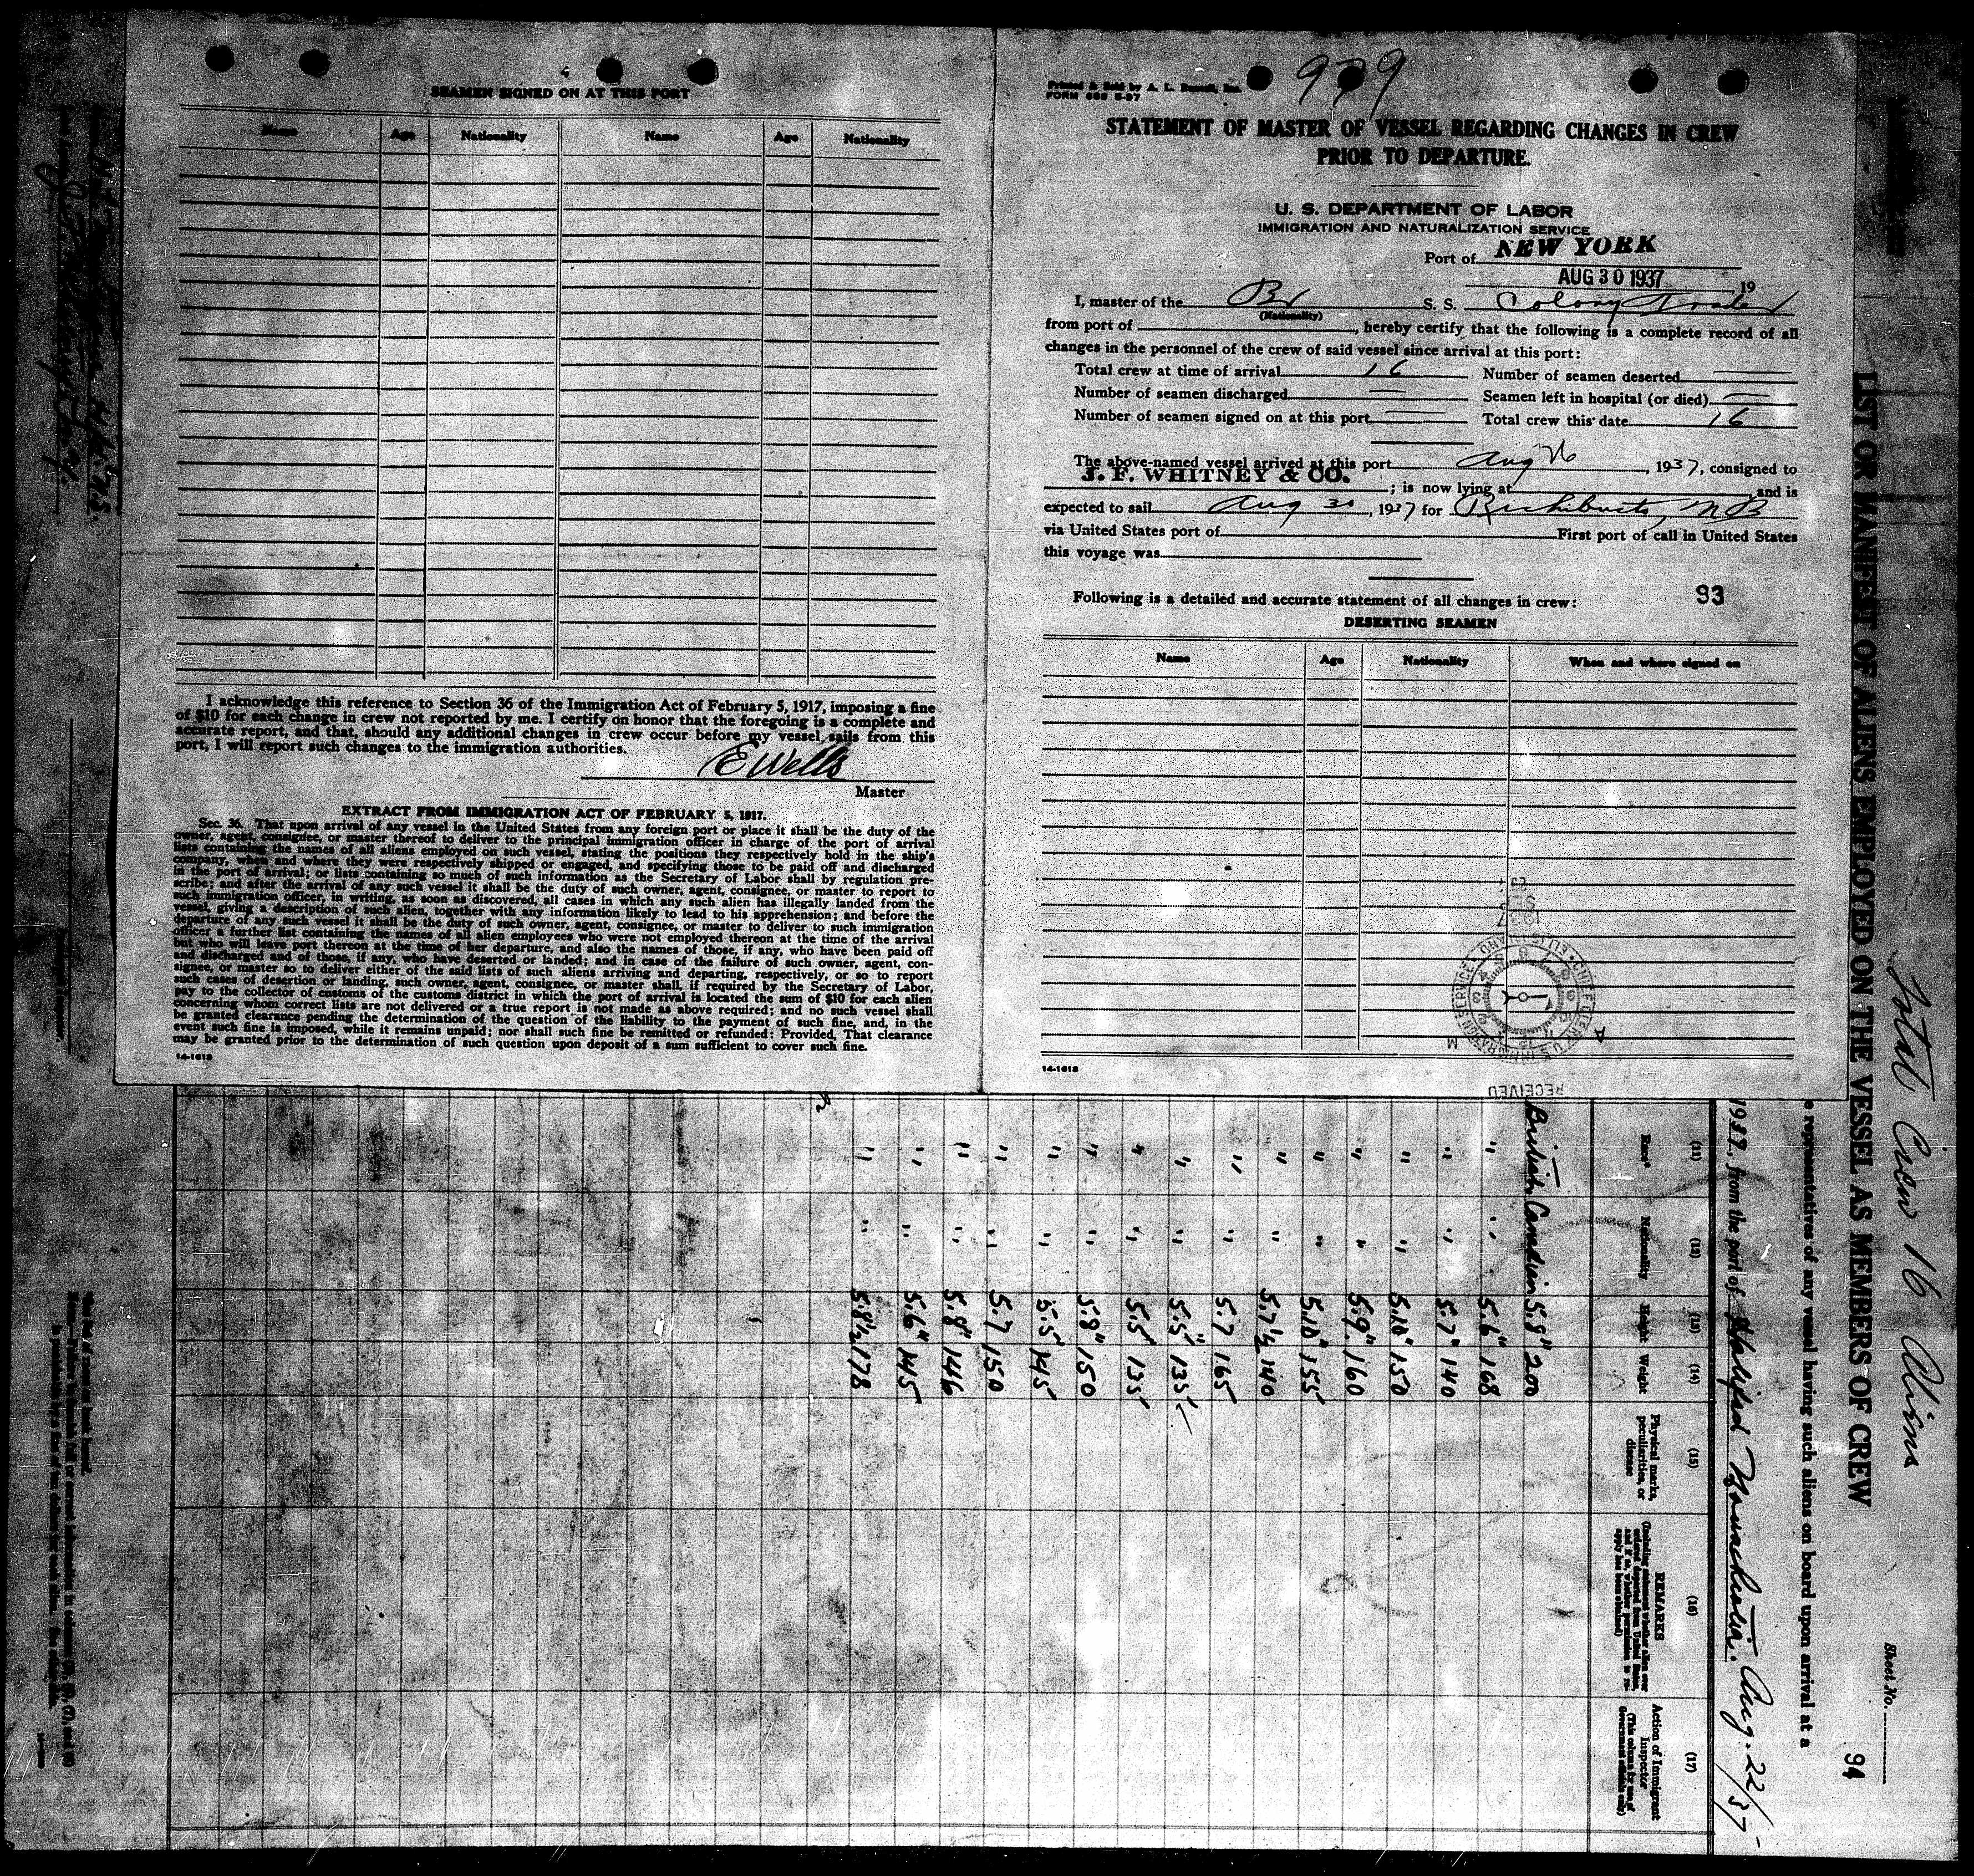 SEAMEN SIGNED ON AT THIS PORT
Name Age Nationality Name Age Nationality
I acknowledge this reference to Section 36 of the Immigration Act of February 5, 1917, imposing a fine
of $10 for each change in crew not reported by me. I certify on honor that the foregoing is a complete and
accurate report, and that, should any additional changes in crew occur before my vessel sails from this
port, I will report such changes to the immigration authorities.
E Wells
Master
EXTRACT FROM IMMIGRATION ACT OF FEBRUARY 5, 1917.
Sec. 36. That upon arrival of any vessel in the United States from any foreign port or place it shall be the duty of the
owner, agent, consignee, or master thereof to deliver to the principal immigration officer in charge of the port of arrival
lists containing the names of all aliens employed on such vessel, stating the positions they respectively hold in the ship's
company, when and where they were respectively shipped or engaged, and specifying those to be paid off and discharged
in the port of arrival; or lists containing so much of such information as the Secretary of Labor shall by regulation pre-
scribe; and after the arrival of any such vessel it shall be the duty of such owner, agent, consignee, or master to report to
such immigration officer, in writing, as soon as discovered, all cases in which any such alien has illegally landed from the
vessel, giving a description of such alien, together with any information likely to lead to his apprehension; and before the
departure of any such vessel it shall be the duty of such owner, agent, consignee, or master to deliver to such immigration
officer a further list containing the names of all alien employees who were not employed thereon at the time of the arrival
but who will leave port thereon at the time of her departure, and also the names of those, if any, who have been paid off
and discharged and of those, if any, who have deserted or landed; and in case of the failure of such owner, agent, con-
signee, or master so to deliver either of the said lists of such aliens arriving and departing, respectively, or so to report
such cases of desertion or landing, such owner, agent, consignee, or master shall, if required by the Secretary of Labor,
pay to the collector of customs of the customs district in which the port of arrival is located the sum of $10 for each alien
concerning whom correct lists are not delivered or a true report is not made as above required; and no such vessel shall
be granted clearance pending the determination of the question of the liability to the payment of such fine, and, in the
event such fine is imposed, while it remains unpaid; nor shall such fine be remitted or refunded: Provided, That clearance
may be granted prior to the determination of such question upon deposit of a sum sufficient to cover such fine.
14-1618
979
Printed & Sold by A. L. Russell, Inc.
FORM 689 5-37
STATEMENT OF MASTER OF VESSEL REGARDING CHANGES IN CREW
PRIOR TO DEPARTURE.
U. S. DEPARTMENT OF LABOR
IMMIGRATION AND NATURALIZATION SERVICE
Port of NEW YORK
AUG 30 1937 19
I, master of the Br S. S. Colony Trader
(Nationality)
from port of , hereby certify that the following is a complete record of all
changes in the personnel of the crew of said vessel since arrival at this port:
Total crew at time of arrival 16 Number of seamen deserted
Number of seamen discharged Seamen left in hospital (or died)
Number of seamen signed on at this port Total crew this date 16
The above-named vessel arrived at this port Aug 26, 1937, consigned to
J. F. WHITNEY & CO. ; is now lying at and is
expected to sail Aug 30, 1937 for Richibucto, NB
via United States port of First port of call in United States
this voyage was
Following is a detailed and accurate statement of all changes in crew: 93
DESERTING SEAMEN
Name Age Nationality When and where signed on
SEP
1937
CHIEF CLERK U.S. IMMIGRATION SERVICE ELLIS ISLAND
A M
14-1618
RECEIVED
Total Crew 16 Aliens
Sheet No.
94
LIST OR MANIFEST OF ALIENS EMPLOYED ON THE VESSEL AS MEMBERS OF CREW
e representatives of any vessel having such aliens on board upon arrival at a
1937, from the port of Halifax Nova Scotia. Aug. 22/37
(11) (12) (13) (14) (15) (16) (17)
Race* Nationality Height Weight Physical marks, peculiarities, or disease REMARKS Action of Immigrant Inspector
British Canadian 5.8" 200
" " 5.6" 168
" " 5.7" 140
" " 5.10" 150
" " 5.9" 160
" " 5.10" 155
" " 5.7½ 140
" " 5.7 165
" " 5.5" 135
" " 5.5" 135
" " 5.9" 150
" " 5.5" 145
" " 5.7 150
" " 5.8" 146
" " 5.6" 145
" " 5.8½ 178